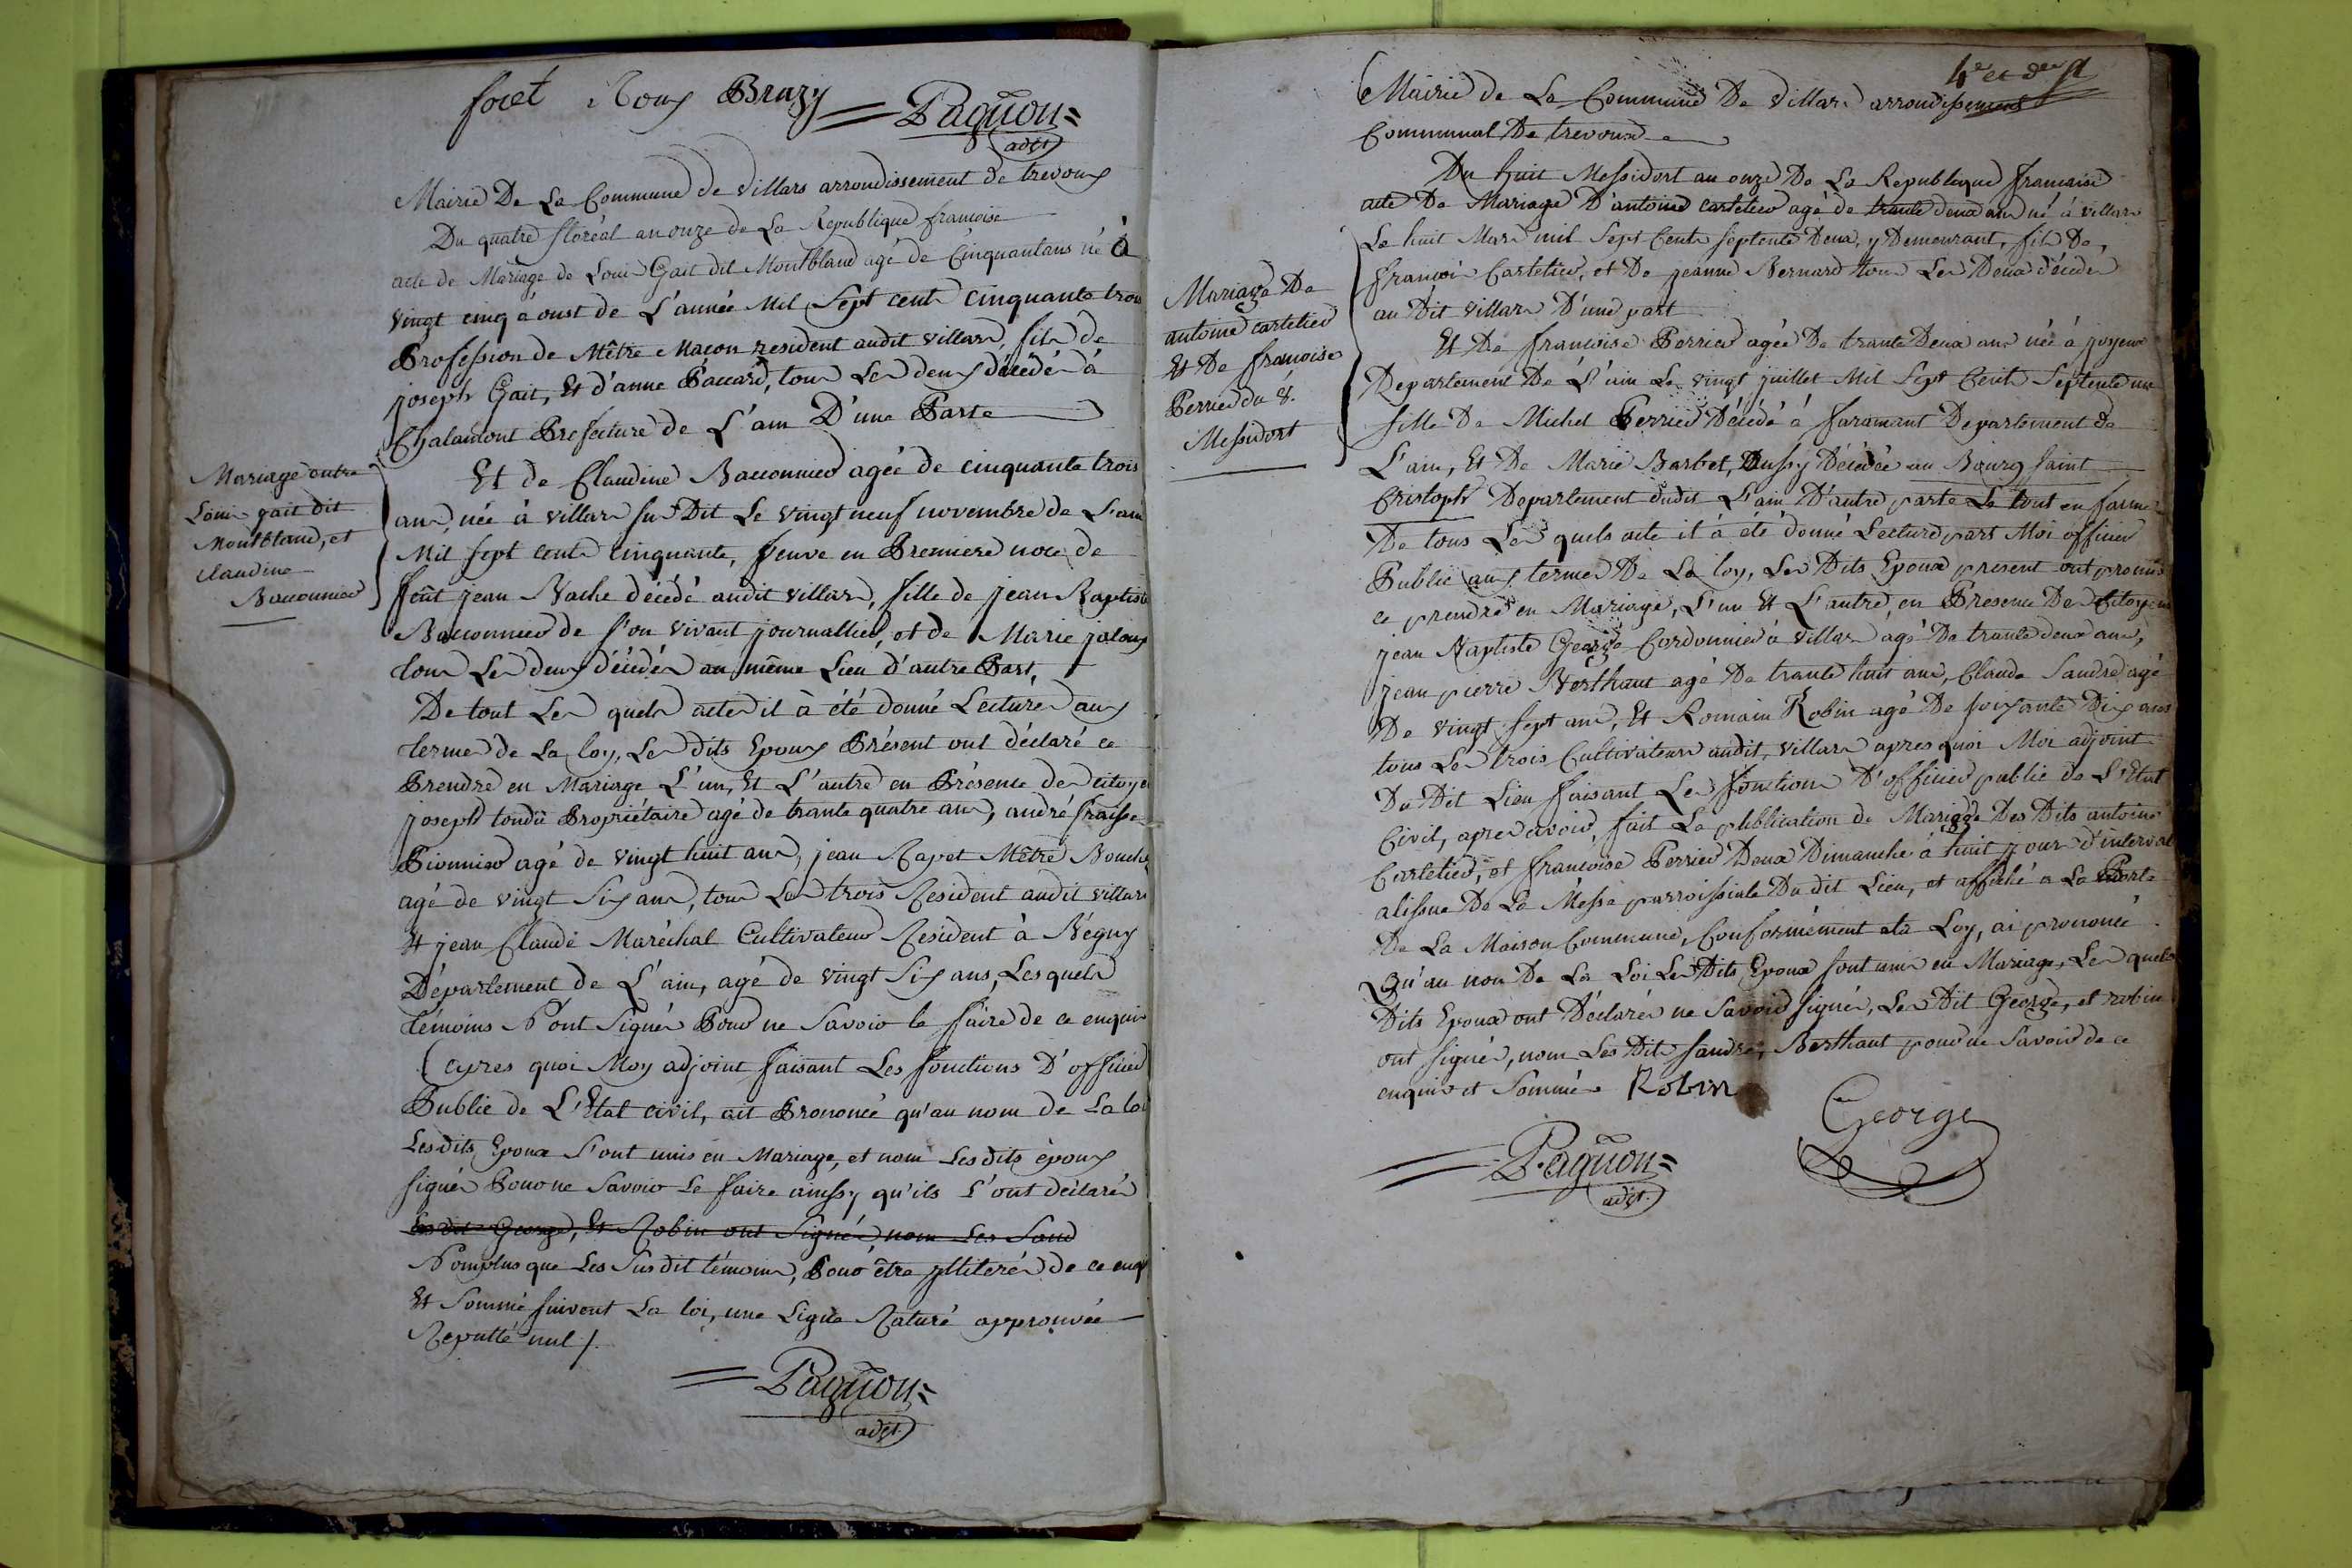 foret Roux Bruzy = Paquon =
adjt
Mairie De La Commune de villars arrondissement de trevoux
Du quatre floréal an onze de La Republique francoise
acte de Mariage de Louis Gait dit Montbland agé de Cinquantans né à
vingt cinq àoust de L'année Mil Sept cents cinquante trois
Profession de Mêtre Macon resident audit villars, fils de
joseph Gait, Et d'anne Paccard, tous Les deux décédés à
Chalamont Prefecture de L'ain D'une Parte
Mariage entre
Louis gait dit
Montbland, et
claudine
Baconnier
Et de Claudine Baconnier agée de cinquante trois
ans, née à villars su Dit Le vingt neuf novembre de L'an
Mil sept cents cinquante, veuve en Premiere noce de
feût jean Vache décédé audit villars, fille de jean Baptiste
Baconnier de s'on vivant journallier, et de Marie jaloux
tous Les deux décédés au même Lieu d'autre Part,
De tout Les quels actes il à été donné Lectures aux
termes de La loy, Les dits Epoux Présent ont déclaré ce
Prendre en Mariage L'un, Et L'autre en Présence des citoyen
joseph tondu Propriétaire agé de trante quatre ans, andré fraisse
Pionnier agé de vingt huit ans, jean Rapet Mêtre Bouche
agé de vingt Six ans, tous Les trois Resident audit villars
Et jean Claude Maréchal Cultivateur Resident à Régny
Département de L'ain, agé de vingt Six ans, Lesquels
témoins N'ont Signés Pour ne Savoir le faire de ce enquis
apres quoi Moy adjoint faisant Les fonctions D'officier
Public de L'Etat civil, ait Prononcé qu'au nom de La loi
Lesdits Epoux S'ont unis en Mariage, et nom Lesdits époux
signés Pour ne Savoir Le faire ainssy qu'ils L'ont déclarés
Les dit George, Et Robin ont Signés nom Les Sand
Nomplus que Les Susdit témoins, Pour être yllitérés de ce enq
Et Sommé suivent La loi, une Ligne Raturé approuvée
Reputté nul /.
= Paquon =
adjt.
4e et der ft
Mairie de La Commune De villars arrondissement
Communal De trevoux
Du huit Messidort an onze De La Republique francaise
acte De Mariage D'antoine cartelier agé de trante deux ans né à villars
Le huit Mars mil Sept Cents septente Deux, y Demeurant, fils De,
francois Cartelier, et De jeanne Bernard tous Les Deux décédés
au Dit villars D'une part
Mariage De
antoine cartelier
Et De francoise
Perrier du 8.
Messidort
Et De francoise Perrier agée De trante Deux ans née à joyeux
Departement De L'ain Le vingt juillet Mil Sept Cents Septente un
fille De Michel Perrier Décédé à faramant Departement de
L'ain, Et De Marie Barbet, Aussy Décédée au Bourg Saint
Cristoph Departement dudit L'ain D'autre parte Le tout en forme
De tous Les quels acte il à été donné Lecture part Moi officier
Public aux termes De La loy, Les Dits Epoux present ont promis
ce prendre en Mariage, L'un Et L'autre, en Presence Des Citoyens
jean Baptiste George Cordonnier à villars agé De trante deux ans,
jean pierre Berthaut agé De trante huit ans, Claude Sandre agé
De vingt sept ans, Et Romain Robin agé De soixante Dix ans
tous Les trois Cultivateurs audit, villars apres quoi Moi adjoint
Du Dit Lieu faisant Les fonctions D'officier public de L'Etat
Civil, apres avoir, fait La publication de Mariage Des Dits antoine
Cartelier, et francoise Perrier Deux Dimanche à huit jour d'interval
alissue De La Messe parroissiale Du dit Lieu, et affiché a La Porte
De La Maison Commune, Conformément ala Loy, ai prononcé
Qu'au nom De La Loi Les Dits Epoux sont unis en Mariage, Les quels
Dits Epoux ont Déclarés ne Savoir Signés, Les Dit George, et robin
ont signés, nom Les Dits Sandre, Berthaut pour ne Savoir de ce
enquis et Sommés Robin
George
= Paquon =
adjt.